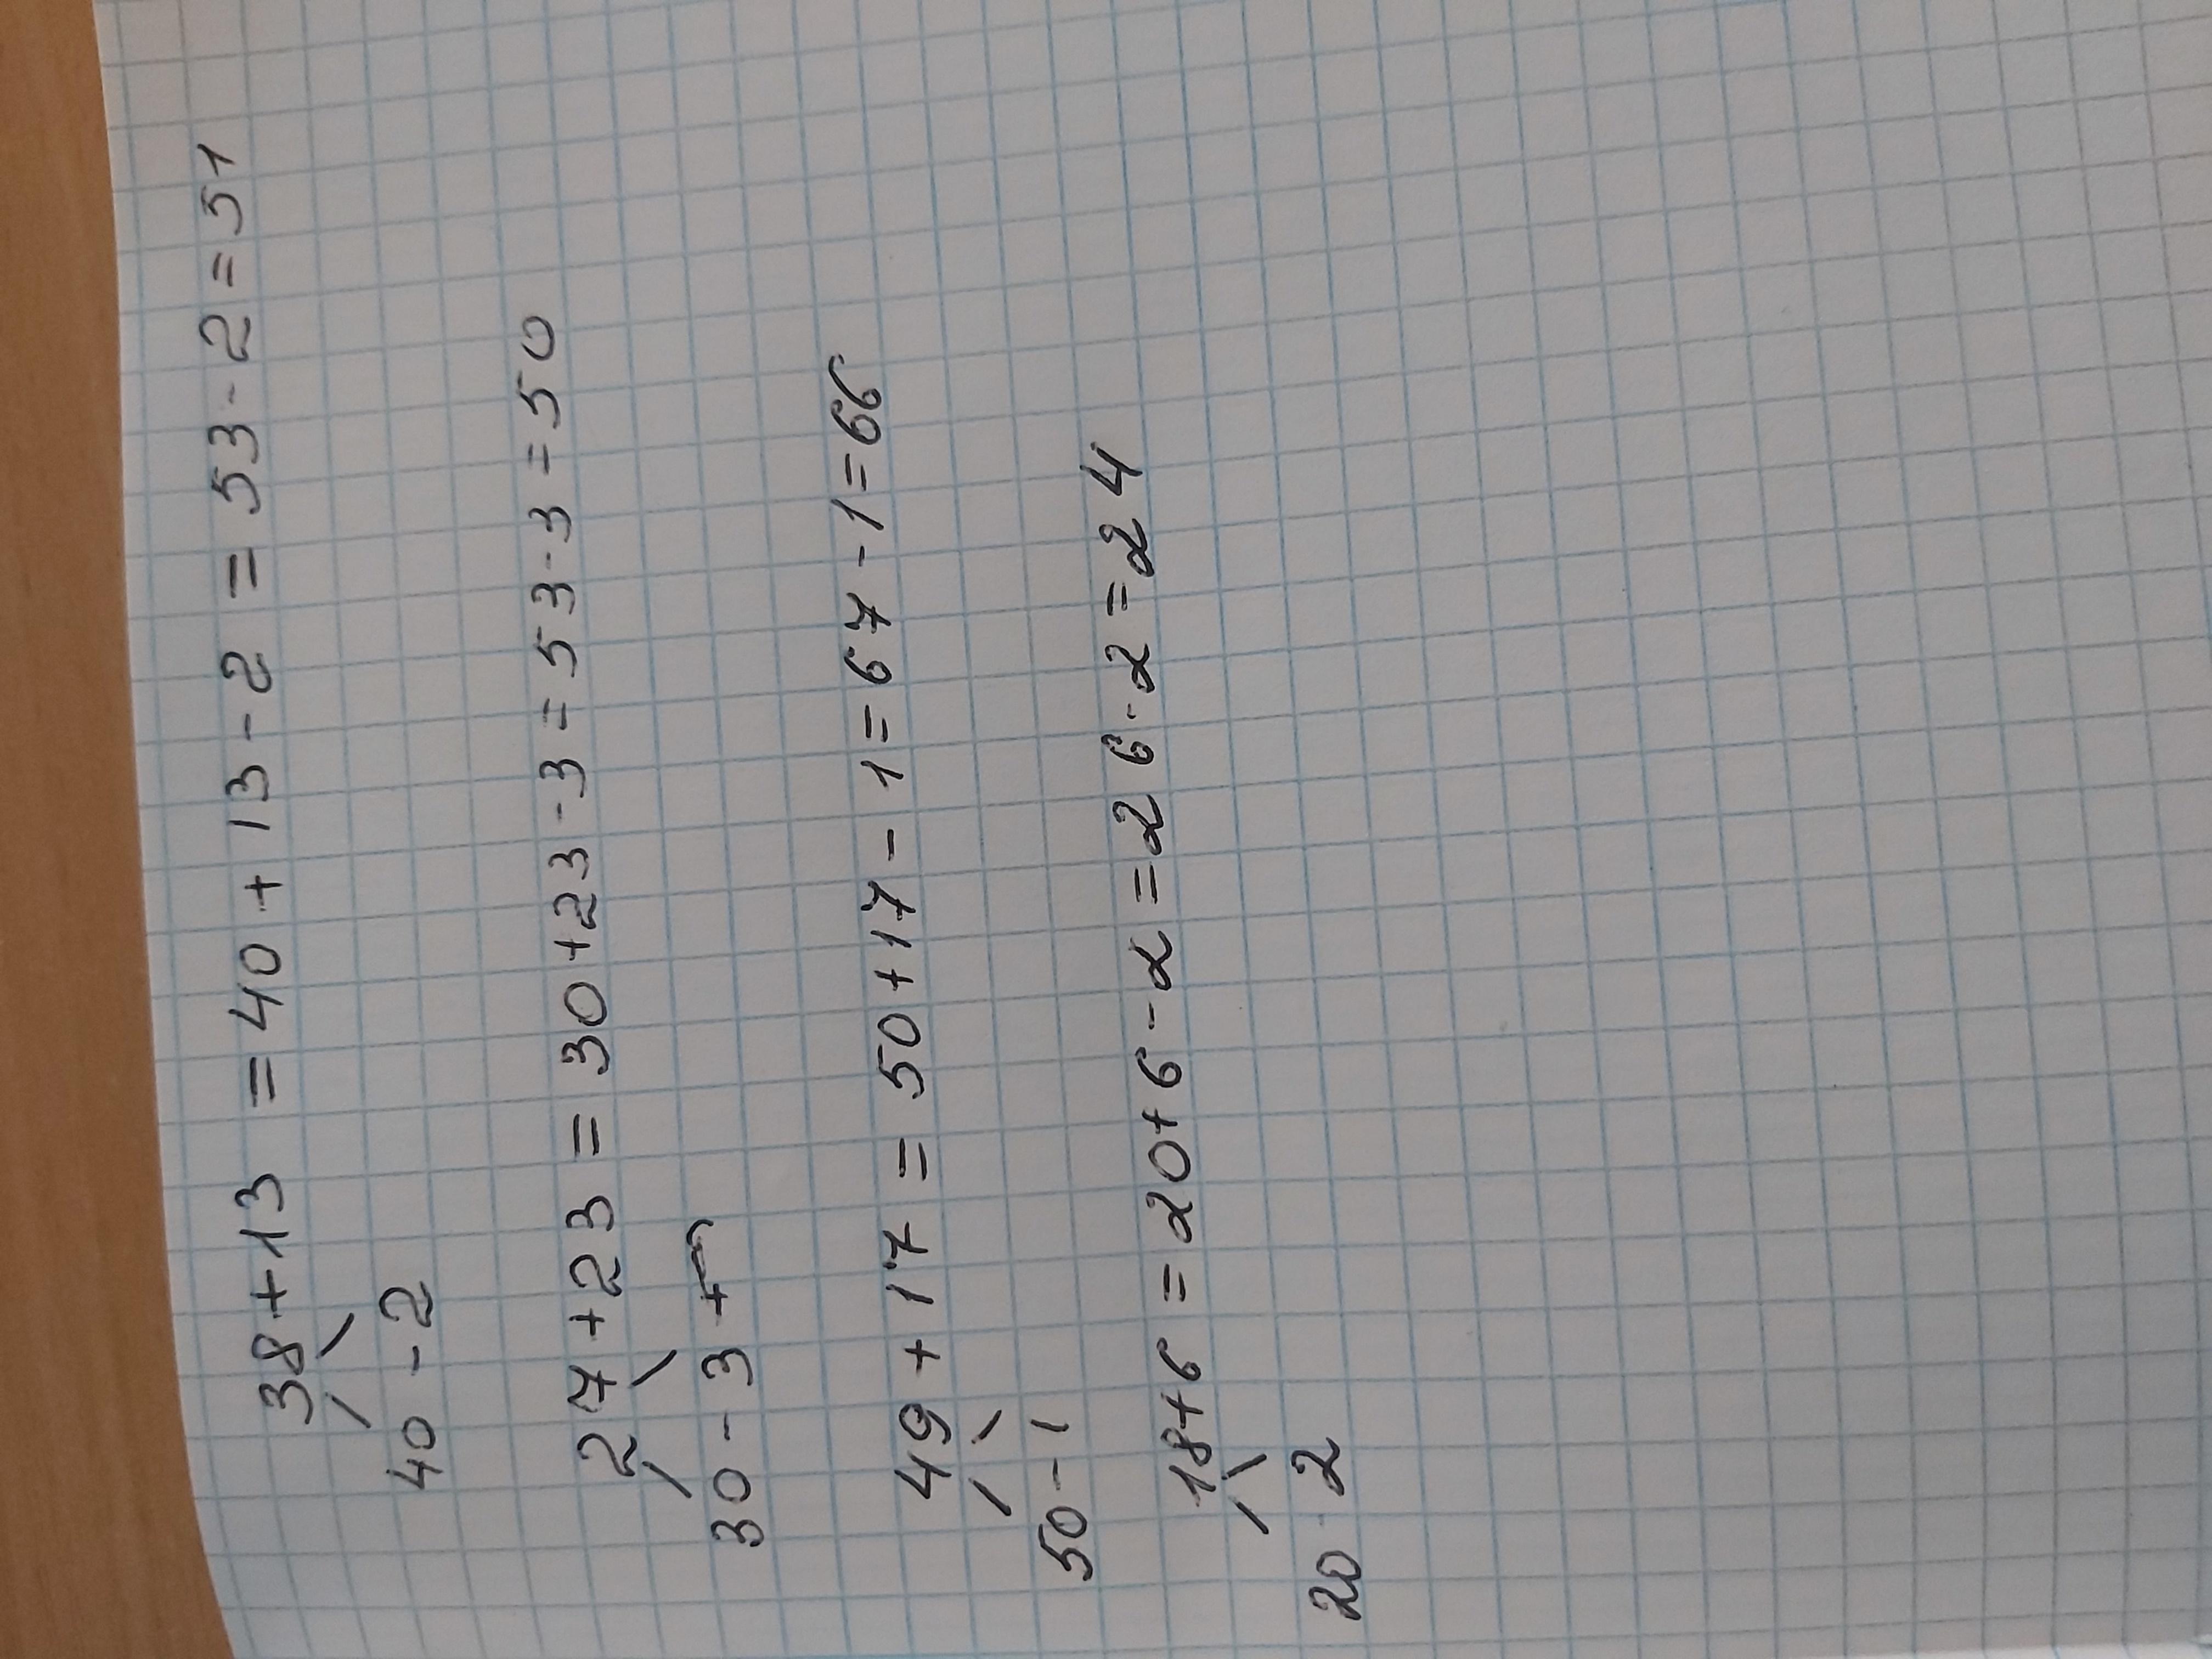 38+13 = 40 + 13 - 2 = 53 - 2 = 51
40 - 2
27 + 23 = 30 + 23 - 3 = 53 - 3 = 50
30 - 3 +
49 + 17 = 50 + 17 - 1 = 67 - 1 = 66
50 - 1
18+6 = 20+6 - 2 = 26 - 2 = 24
20 - 2